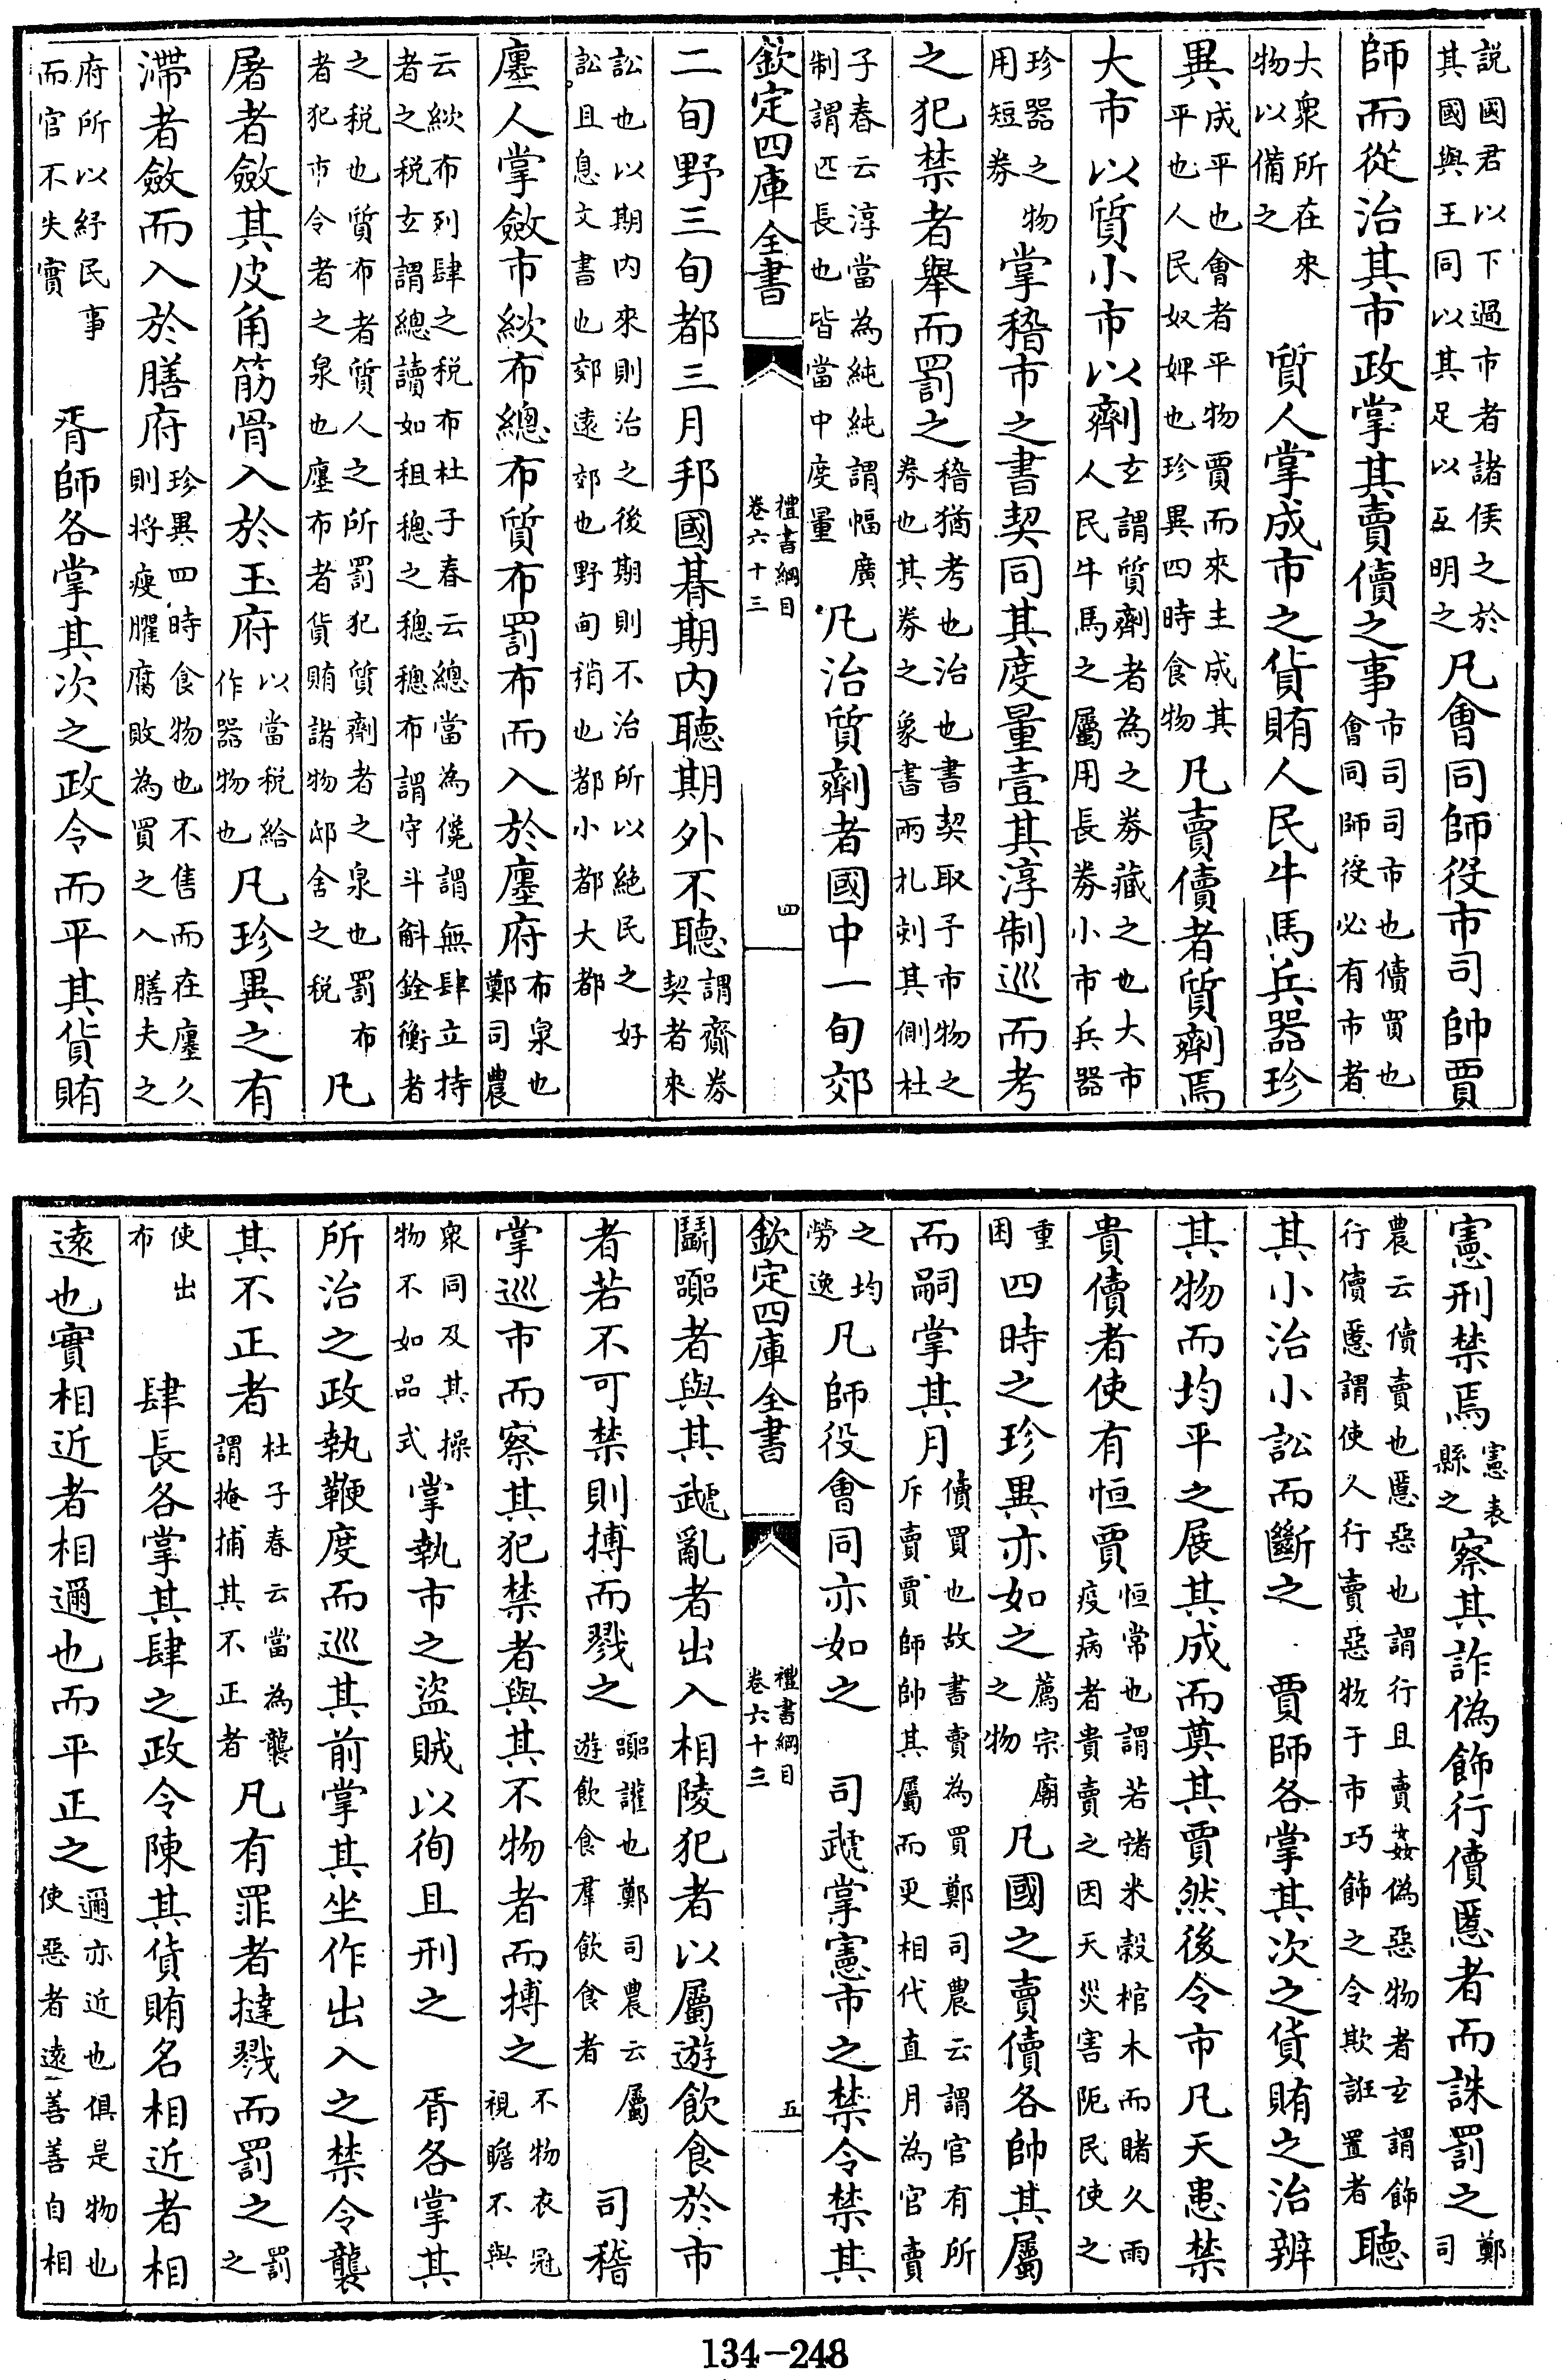 説國君以下過市者諸侯之於其國與王同以其足以互明之凡會同師役市司帥賈
師而從治其市政掌其賣儥之事市司司市也儥買也會同師役必有市者
大衆所在來物以備之　質人掌成市之貨賄人民牛馬兵器珍
異成平也會者平物賈而來主成其平也人民奴婢也珍異四時食物凡賣儥者質劑焉
大市以質小市以劑玄謂質劑者為之券藏之也大市人民牛馬之屬用長券小市兵器
珍器之物用短券掌稽市之書契同其度量壹其淳制巡而考
之犯禁者舉而罰之稽猶考也治也書契取予市物之券也其券之象書兩札刻其側杜
子春云淳當為純純謂幅廣制謂匹長也皆當中度量凡治質劑者國中一旬郊
欽定四庫全書　禮書綱目　卷六十三　四
二旬野三旬都三月邦國朞期内聽期外不聽謂齎券契者來
訟也以期内來則治之後期則不治所以絶民之好訟且息文書也郊遠郊也野甸稍也都小都大都
廛人掌斂市絘布總布質布罰布而入於廛府布泉也鄭司農
云絘布列肆之税布杜子春云總當為儳謂無肆立持者之税玄謂總讀如租稯之稯稯布謂守斗斛銓衡者
之税也質布者質人之所罰犯質劑者之泉也罰布者犯市令者之泉也廛布者貨賄諸物邸舍之税凡
屠者斂其皮角筋骨入於玉府以當税給作器物也凡珍異之有
滯者斂而入於膳府珍異四時食物也不售而在廛久則將瘦臞腐敗為買之入膳夫之
府所以紓民事而官不失實　胥師各掌其次之政令而平其貨賄
憲刑禁焉憲表縣之察其詐偽飾行儥慝者而誅罰之鄭司
農云儥賣也慝惡也謂行且賣姦偽惡物者玄謂飾行儥慝謂使人行賣惡物于市巧飾之令欺誑買者聽
其小治小訟而斷之　賈師各掌其次之貨賄之治辨
其物而均平之展其成而奠其賈然後令市凡天患禁
貴儥者使有恒賈恒常也謂若豬米榖棺木而睹久雨疫病者貴賣之因天災害阨民使之
重困四時之珍異亦如之薦宗廟之物凡國之賣儥各帥其屬
而嗣掌其月儥買也故書賣為買鄭司農云謂官有所斥賣賈師帥其屬而更相代直月為官賣
之均勞逸凡師役會同亦如之　司虣掌憲市之禁令禁其
欽定四庫全書　禮書綱目　卷六十三　五
鬭嚻者與其虣亂者出入相陵犯者以屬遊飲食於市
者若不可禁則搏而戮之嚻讙也鄭司農云屬遊飲食羣飲食者　司稽
掌巡市而察其犯禁者與其不物者而搏之不物衣冠視瞻不與
衆同及其操物不如品式掌執市之盜賊以徇且刑之　胥各掌其
所治之政執鞭度而巡其前掌其坐作出入之禁令襲
其不正者杜子春云當為襲謂掩捕其不正者凡有罪者撻戮而罰之罰之
使出布　肆長各掌其肆之政令陳其貨賄名相近者相
遠也實相近者相邇也而平正之邇亦近也俱是物也使惡者遠善善自相
134-248